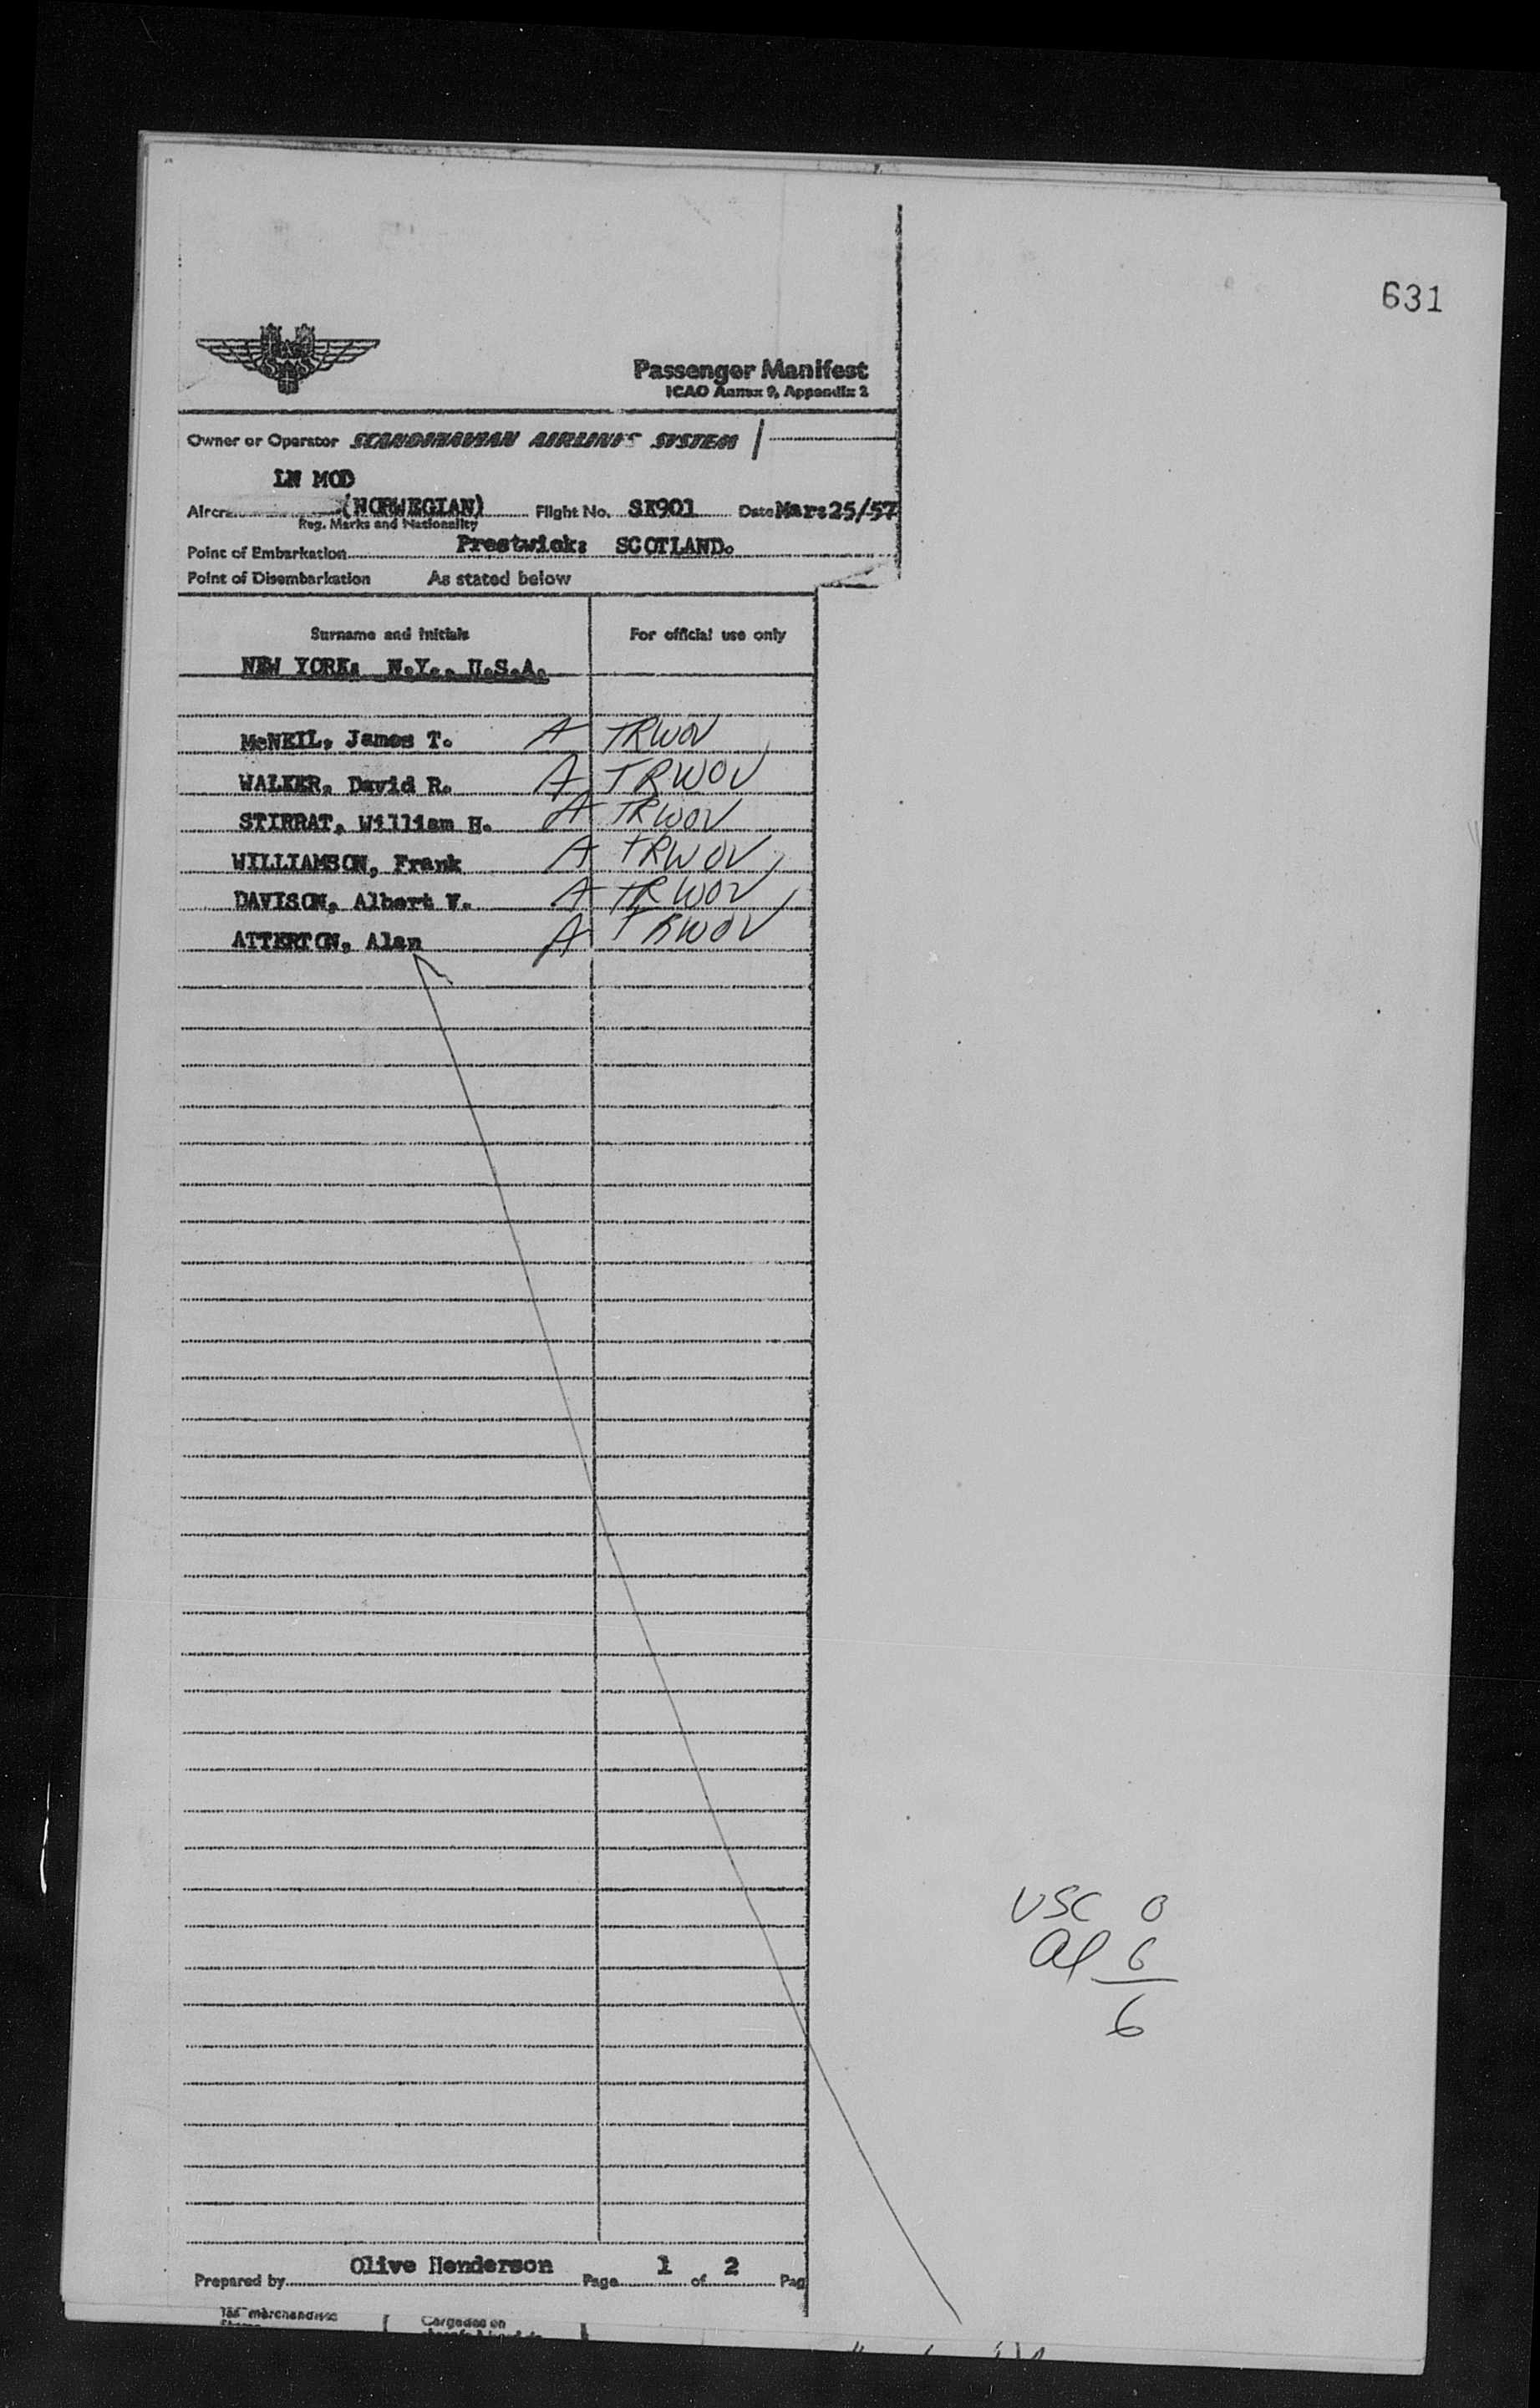 631
Passenger Manifest
ICAO Annex 9, Appendix 2
Owner or Operator SCANDINAVIAN AIRLINES SYSTEM
LN MOD
(NORWEGIAN) Flight No. SK901 Date Mar:25/57
Reg. Marks and Nationality
Point of Embarkation Prestwick: SCOTLAND.
Point of Disembarkation As stated below
Surname and Initials For official use only
NEW YORK: N.Y.. U.S.A.
McNEIL, James T. A TRWOV
WALKER, David R. A TRWOV
STIRRAT, William H. A TRWOV
WILLIAMSON, Frank A TRWOV
DAVISON, Albert V. A TRWOV
ATTERTON, Alan A TRWOV
USC 0
Al 6
6
Prepared by Olive Henderson Page 1 of 2 Pag
las merchandise
Cargadas en